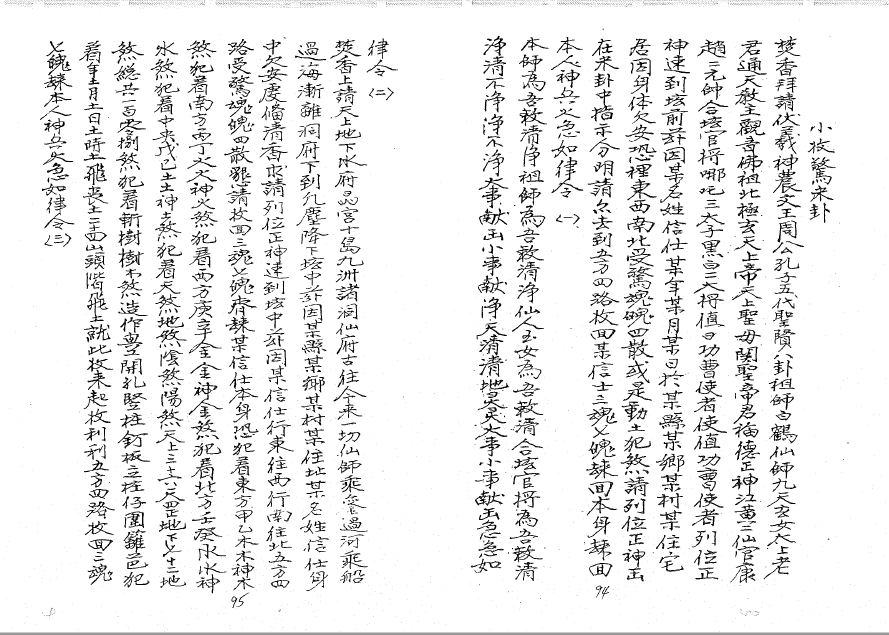 小收驚米卦
焚香拜請伏羲神農文王周公孔子五代聖賢八卦祖師白鶴仙師九天玄女太上老
君通天教主觀音佛祖北極玄天上帝天上聖母關聖帝君福德正神江黃二仙官康
趙二元帥合垓官將哪吒三太子黑白二大將值日功曹使者使值功曹使者列位正
神速到垓前茲因某名姓信仕某年某月某日於某縣某鄉某村某住宅
居因身体欠安恐裡東西南北受驚魂魄四散或是動土犯煞請列位正神出
在米卦中指示分明請尔去到五方四路收回某信士三魂七魄隸回本身隸回
本人神兵火急如律令(一)
本師為吾敕清淨祖師為吾敕清淨仙人玉女為吾敕清合垓官將為吾敕清
淨清不淨淨不淨大事献出小事献淨天清清地灵灵大事小事献出急急如
94
律令(二)
焚香上請天上地下水府品宮十島九洲諸洞仙府古往今來一切仙師乘雲過河乘船
過海漸離洞府下到凡塵降下垓中茲因某縣某鄉某村某住址某名姓信仕身
中欠安虔備清香求請列位正神速到垓中茲因某信仕行東往西行南往北五方四
路受驚魂魄四散懇請收回三魂七魄齊隸某信仕本身恐犯着東方甲乙木木神木
煞犯着南方丙丁火火神火煞犯着西方庚辛金金神金煞犯着北方壬癸水水神
水煞犯着中央戊己土土神土煞犯着天煞地煞陰煞陽煞天上三十六天罡地下七十二地
煞総共一百零捌煞犯着斬樹樹木煞造作興工開孔竪柱釘板立柱仔圍籬笆犯
着年土月土日土時土飛喪土二十四山頭階飛土就此收來起收利利五方四路收回三魂
七魄隸本人神兵火急如律令(三)
95